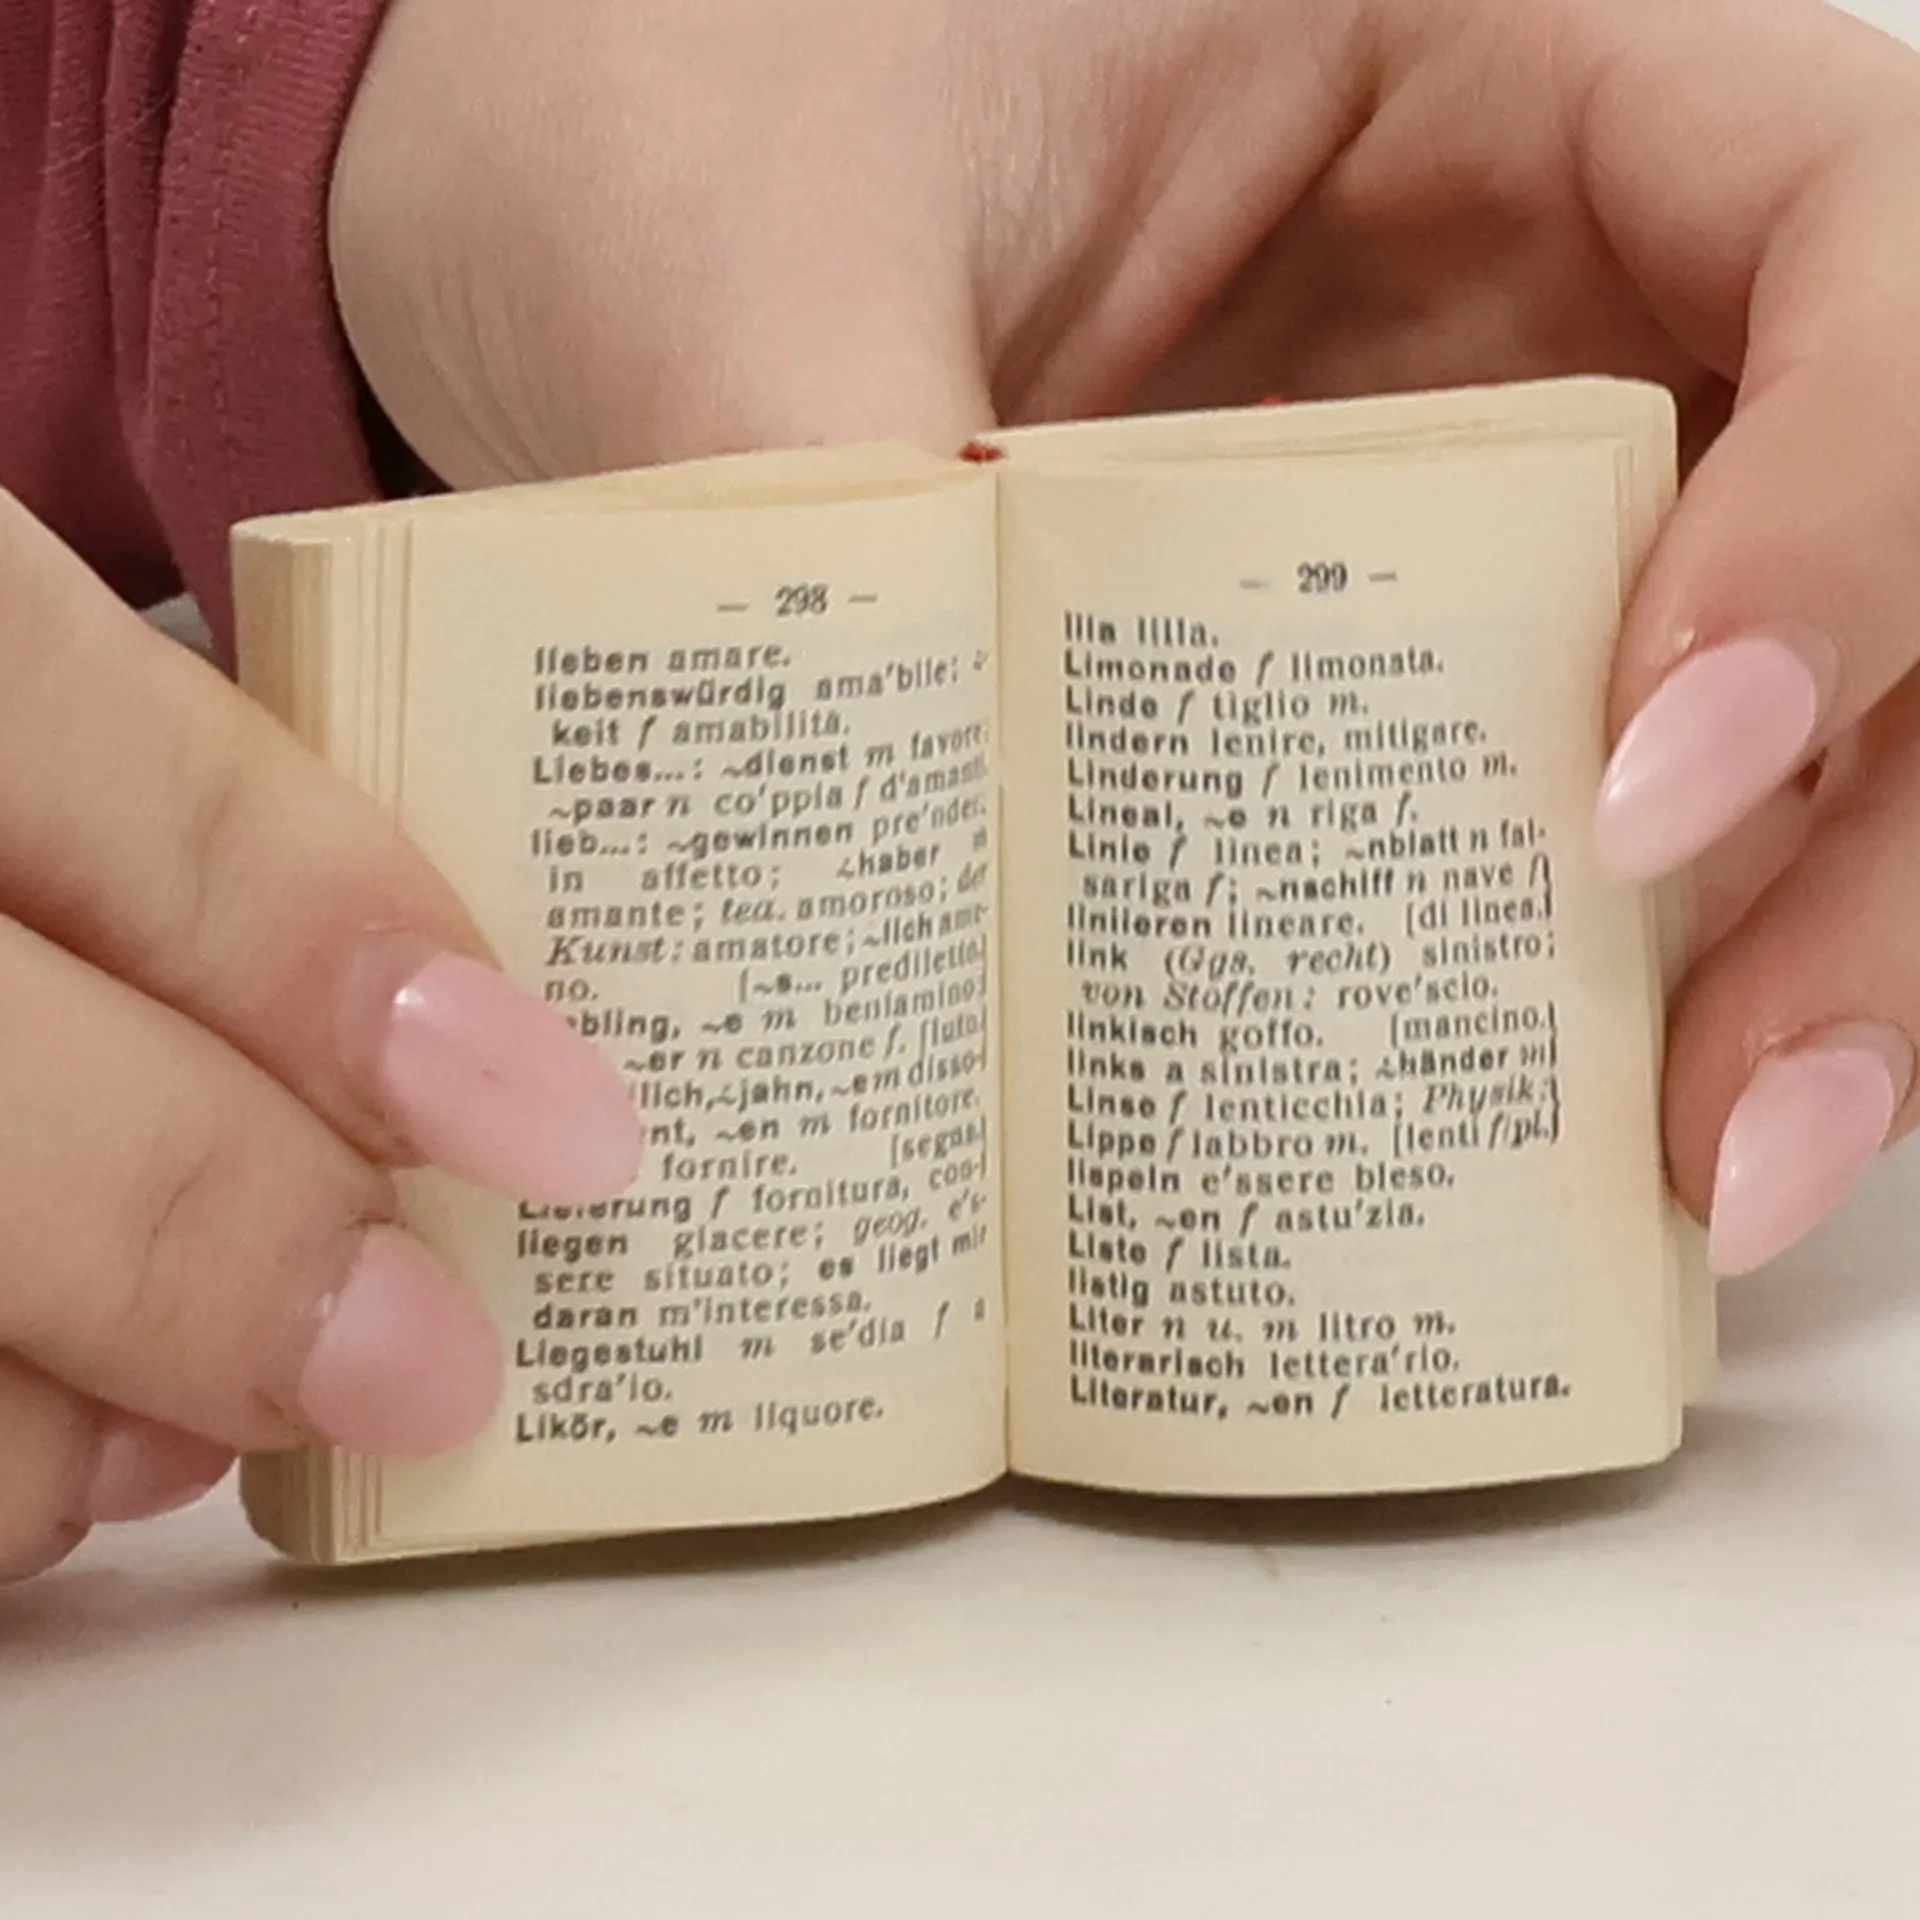 — 298 —
lieben amare.
liebenswürdig ama'bile;
keit f amabilità.
Liebes...: ~dienst m favore;
~paar n co'ppia f d'amanti.
lieb...: ~gewinnen pre'nder.
in affetto; ~haber m
amante; tea. amoroso; der
Kunst: amatore; ~lich ame-
no. [~s... prediletto.]
bling, ~e m beniamino
~er n canzone f. [luto]
lich, ~jahn, ~e m disso-
nt, ~en m fornitore.
fornire. [segna.]
Lieferung f fornitura, con-
liegen giacere; geog. e's-
sere situato; es liegt mir
daran m'interessa.
Liegestuhl m se'dia f a
sdra'io.
Likör, ~e m liquore.
— 299 —
lila lilla.
Limonade f limonata.
Linde f tiglio m.
lindern lenire, mitigare.
Linderung f lenimento m.
Lineal, ~e n riga f.
Linie f linea; ~nblatt n fal-
sariga f; ~nschiff n nave f
liniieren lineare. [di linea.]
link (Ggs. recht) sinistro;
von Stoffen: rove'scio.
linkisch goffo. [mancino.]
links a sinistra; ~händer m
Linse f lenticchia; Physik:
Lippe f labbro m. [lenti f/pl.]
lispeln e'ssere bleso.
List, ~en f astu'zia.
Liste f lista.
listig astuto.
Liter n u. m litro m.
literarisch lettera'rio.
Literatur, ~en f letteratura.